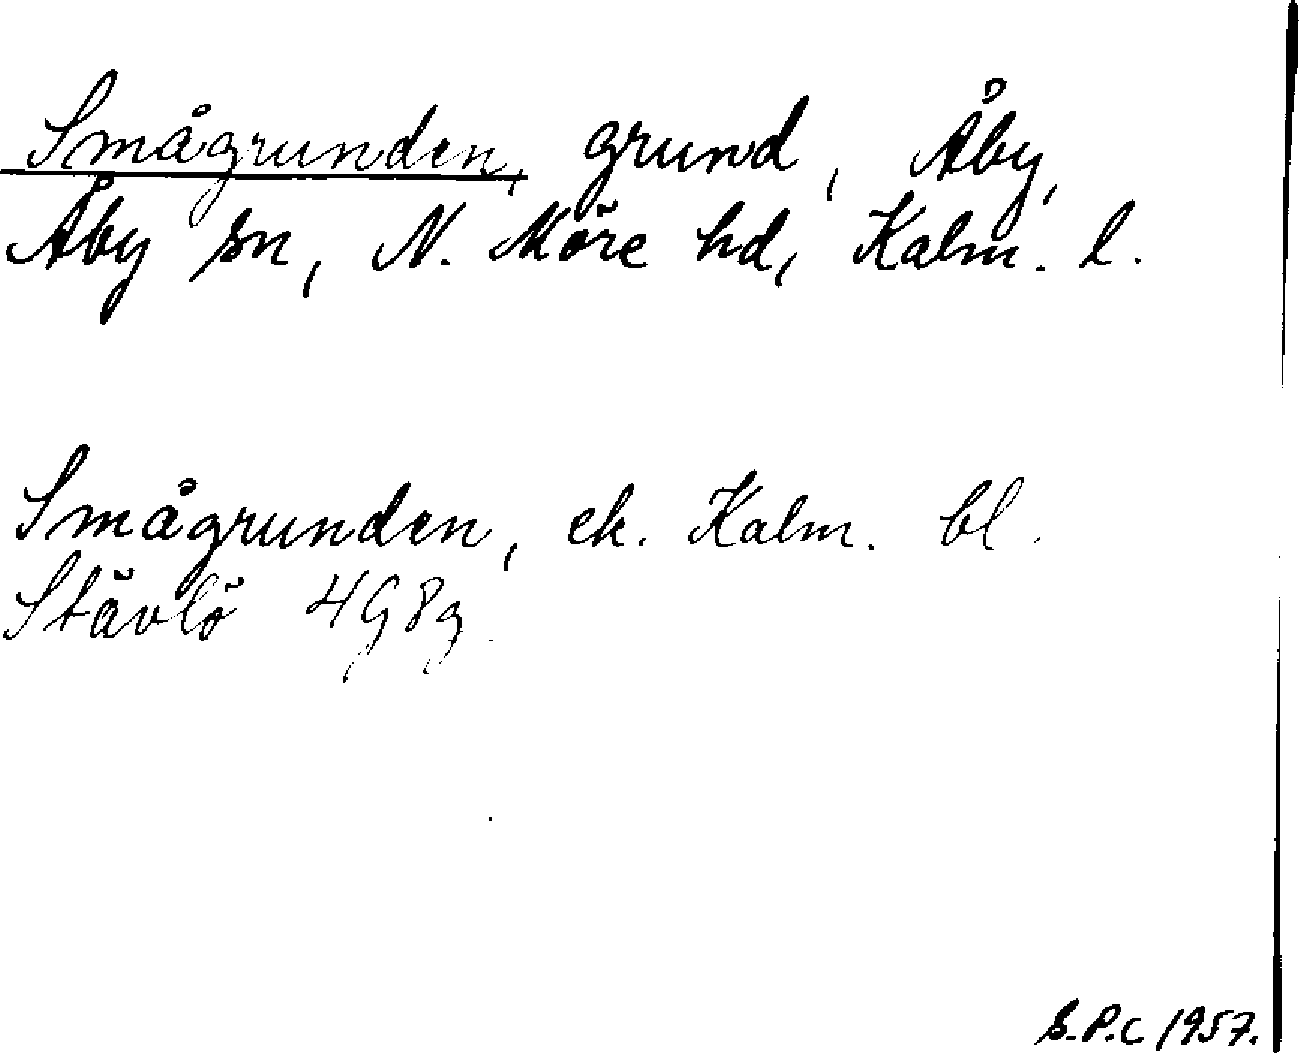 Smågrunden, grund, Åby,
Åby sn, N. Möre hd, Kalm. l.
Smågrunden, ek. Kalm. bl.
Stävlö 4G8g.
S.P.C 1957.